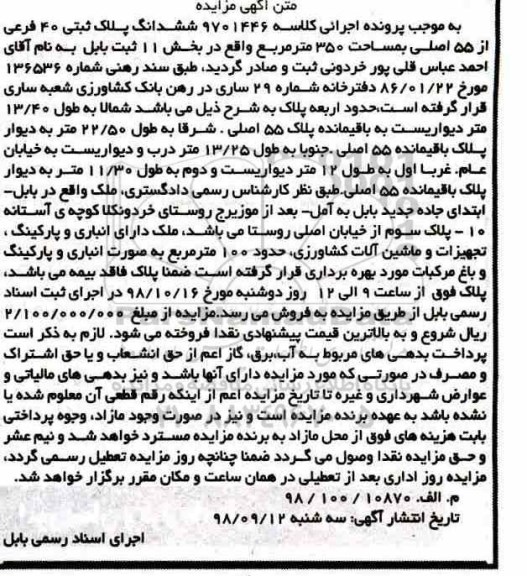 متن آگهی مزایده
به موجب پرونده اجرائی کلاسه ۹۷۰۱۴۴۶ ششدانگ پلاک ثبتی ۴۰ فرعی
از ۵۵ اصلی بمساحت ۳۵۰ مترمربع واقع در بخش ۱۱ ثبت بابل به نام آقای
احمد عباس قلی پور خردونی ثبت و صادر گردید، طبق سند رهنی شماره ۱۳۶۵۳۶
مورخ ۸۶/۰۱/۲۲ دفترخانه شماره ۲۹ ساری در رهن بانک کشاورزی شعبه ساری
قرار گرفته است،حدود اربعه پلاک به شرح ذیل می باشد شمالا به طول ۱۳/۴۰
متر دیواریست به باقیمانده پلاک ۵۵ اصلی . شرقا به طول ۲۲/۵۰ متر به دیوار
پلاک باقیمانده ۵۵ اصلی .جنوبا به طول ۱۳/۲۵ متر درب و دیواریست به خیابان
عام. غربا اول به طول ۱۲ متر دیواریست و دوم به طول ۱۱/۳۰ متر به دیوار
پلاک باقیمانده ۵۵ اصلی.طبق نظر کارشناس رسمی دادگستری، ملک واقع در بابل-
ابتدای جاده جدید بابل به آمل- بعد از موزیرج روستای خردونکلا کوچه ی آستانه
۱۰ - پلاک سوم از خیابان اصلی روستا می باشد، ملک دارای انباری و پارکینگ ،
تجهیزات و ماشین آلات کشاورزی، حدود ۱۰۰ مترمربع به صورت انباری و پارکینگ
و باغ مرکبات مورد بهره برداری قرار گرفته است ضمنا پلاک فاقد بیمه می باشد،
پلاک فوق از ساعت ۹ الی ۱۲ روز دوشنبه مورخ ۹۸/۱۰/۱۶ در اجرای ثبت اسناد
رسمی بابل از طریق مزایده به فروش می رسد.مزایده از مبلغ ۲/۱۰۰/۰۰۰/۰۰۰
ریال شروع و به بالاترین قیمت پیشنهادی نقدا فروخته می شود. لازم به ذکر است
پرداخت بدهی های مربوط به آب،برق، گاز اعم از حق انشعاب و یا حق اشتراک
و مصرف در صورتی که مورد مزایده دارای آنها باشد و نیز بدهی های مالیاتی و
عوارض شهرداری و غیره تا تاریخ مزایده اعم از اینکه رقم قطعی آن معلوم شده یا
نشده باشد به عهده برنده مزایده است و نیز در صورت وجود مازاد، وجوه پرداختی
بابت هزینه های فوق از محل مازاد به برنده مزایده مسترد خواهد شد و نیم عشر
و حق مزایده نقدا وصول می گردد ضمنا چنانچه روز مزایده تعطیل رسمی گردد،
مزایده روز اداری بعد از تعطیلی در همان ساعت و مکان مقرر برگزار خواهد شد.
م. الف. ۱۰۸۷۰ / ۱۰۰ / ۹۸
تاریخ انتشار آگهی: سه شنبه ۹۸/۰۹/۱۲
اجرای اسناد رسمی بابل